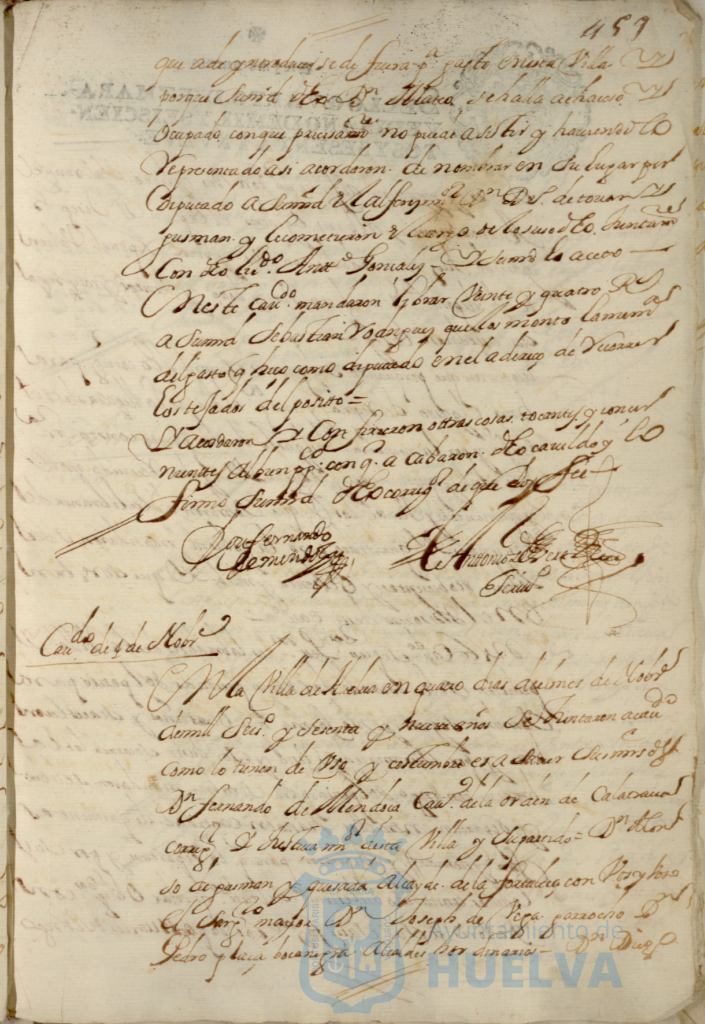 459
que a de yntroducirse de fuera pa gasto desta Villa
porque su md dho Dn Matheo se halla achacoso
ocupado con que precisamte no puede asistir y haviendolo
Representado asi acordaron de nombrar en su lugar por
Diputado a su md el alferez mor Dn Do de tovar
gusman y le cometieron el cargo de lo susodho Juntamte
Con dho Licdo Anto Gonzales y su md lo aceto
En este Cavdo mandaron librar Veinte y quatro Rs
a su md Sebastian que los monto la memª
del gasto q hiço como diputado en el adereço de Recorrer
los tejados del posito =
Y acordaron y Confirieron otras cosas tocantes y concer
nientes al bien ppco con q acabaron dho cavildo y lo
firmo su md dho corregr de que doy fee
Don fernando
de mendoza
Antonio de
Escrivº
Cavdo de 4 de Nobre
En la Villa de Huelva en quatro dias del mes de Nobre
de mill Seisº y sesenta y nueve años Se Juntaron a cavdo
como lo tienen de Uso y costumbre es a saver sus mrds
Dn fernando de Mendoça Cavº de la orden de Calatrava
corregr y Justicia mor desta Villa y su partido = Dn Alon
so de gusman y quesada Alcayde de la fortaleça con Vos y Voto
el Sargto mayor Dn Joseph de Vega garrocho Dn
Pedro plaça bocanegra Alcaldes hordinarios = Dn Diego
Ayuntamiento de
HUELVA